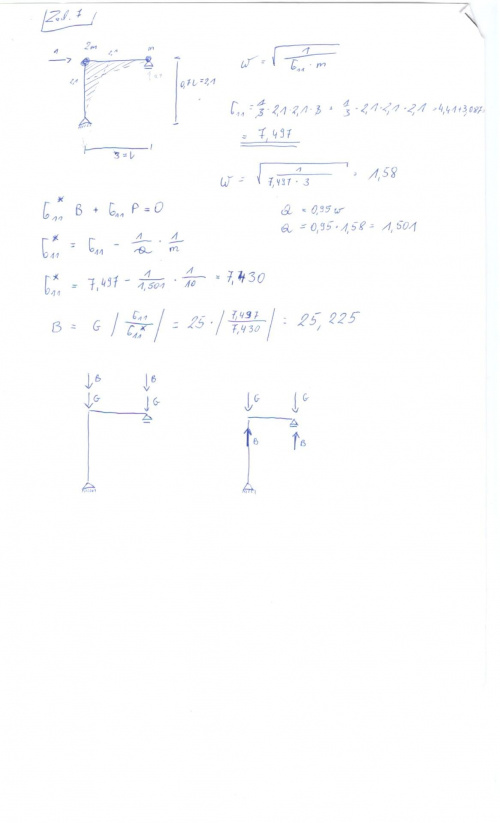 Zad. 7
2m 2,1 m
2,1
0,7L=2,1
3=L
ω = √ 1 / δ11 · m
δ11 = 1/3 · 2,1 · 2,1 · 3 + 1/3 · 2,1 · 2,1 · 2,1 = 4,41+3,087=
= 7,497
ω = √ 1 / 7,497 · 3 = 1,58
δ11* B + δ11 P = 0
Ω = 0,95 ω
Ω = 0,95 · 1,58 = 1,501
δ11* = δ11 - 1/Ω · 1/m
δ11* = 7,497 - 1/1,501 · 1/10 = 7,430
B = G | δ11 / δ11* | = 25 · | 7,497 / 7,430 | = 25,225
B B
G G G G
B B